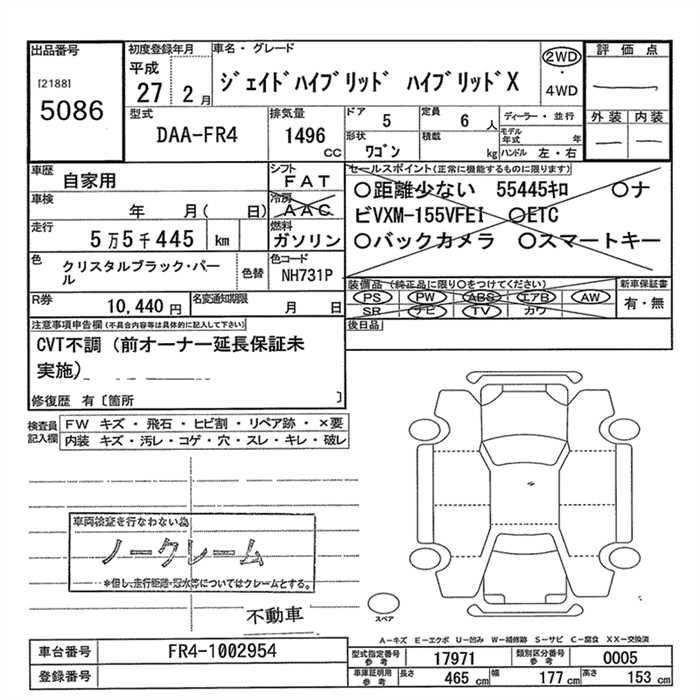 出品番号
[2188]
5086
初度登録年月
平成
27 2 月
車名・グレード
ジェイドハイブリッド ハイブリッドX
2WD
・
4WD
評価点
外装 内装
型式
DAA-FR4
排気量
1496
CC
ドア
5
定員
6 人
形状
ワゴン
積載
kg
ディーラー・並行
モデル年式 年
ハンドル 左・右
車歴
自家用
シフト
FAT
車検
年 月( 日)
冷房
AAC
走行
5万5千445 km
燃料
ガソリン
色
クリスタルブラック・パール
色替
色コード
NH731P
R券
10,440 円
名変通知期限
月 日
セールスポイント(正常に機能するものに限ります)
○距離少ない 55445キロ ○ナ
ビVXM-155VFEI ○ETC
○バックカメラ ○スマートキー
装備品(純正品に限り○をつけてください)
PS PW ABS エアB AW
SR ナビ TV カワ
新車保証書
有・無
後日品
注意事項申告欄(不具合内容等は具体的に記入して下さい)
CVT不調(前オーナー延長保証未
実施)
修復歴 有〔箇所 〕
検査員
記入欄
FW キズ・飛石・ヒビ割・リペア跡・×要
内装 キズ・汚レ・コゲ・穴・スレ・キレ・破レ
車両検査を行なわない為
ノークレーム
※但し、走行距離・冠水等についてはクレームとする。
不動車
スペア
A－キズ E－エクボ U－凹み W－補修跡 S－サビ C－腐食 XX－交換済
車台番号
FR4-1002954
登録番号
型式指定番号
参考
17971
類別区分番号
参考
0005
車庫証明用
参考
長さ
465 cm
幅
177 cm
高さ
153 cm